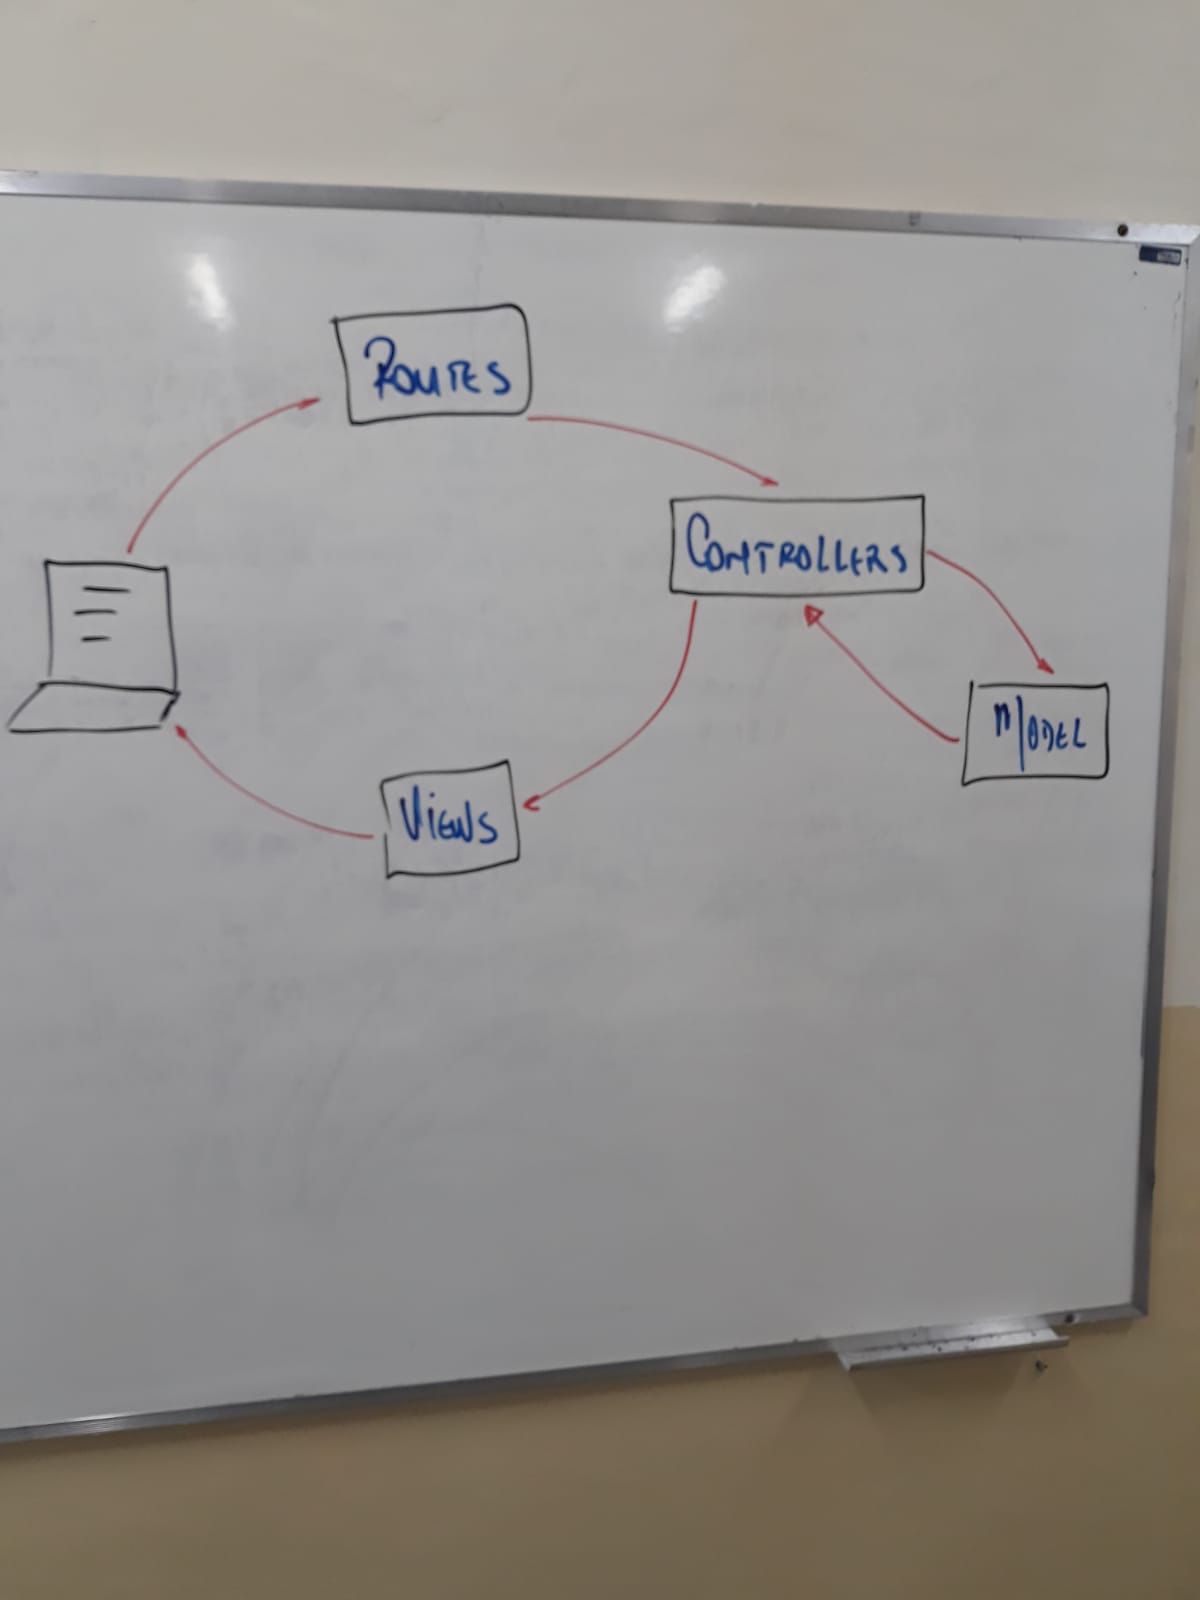 ROUTES
CONTROLLERS
MODEL
VIEWS